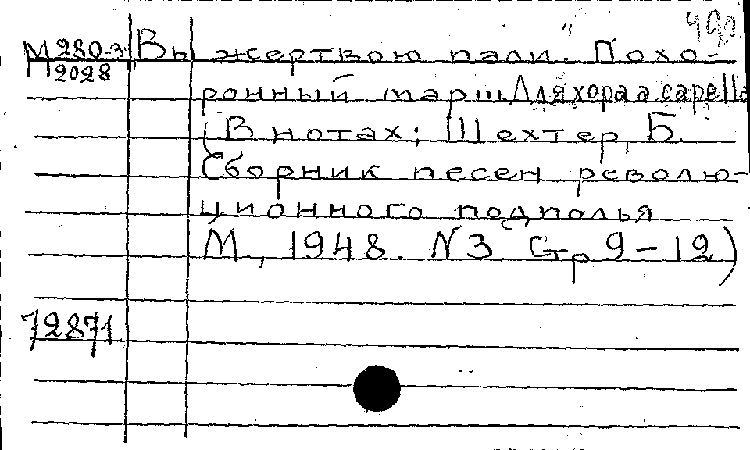 490
М 280-3 Вы жертвою пали. Похо-
2028
ронный марш. Для хора a capella
(В нотах; Шехтер, Б.
Сборник песен револю-
ционного подполья
М., 1948. N3 Стр 9-12)
72871